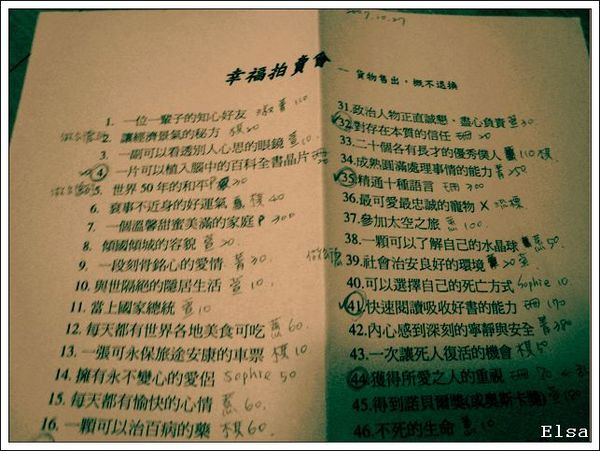 2007.10.27
幸福拍賣會 — 貨物售出,概不退換
1. 一位一輩子的知心好友 110
2. 讓經濟景氣的秘方 棋20
3. 一副可以看透別人心思的眼鏡 萱10
4. 一片可以植入腦中的百科全書晶片
5. 世界50年的和平 30
6. 衰事不近身的好運氣 棋40
7. 一個溫馨甜蜜美滿的家庭 P 300
8. 傾國傾城的容貌 萱20.
9. 一段刻骨銘心的愛情 菁30
10. 與世隔絕的隱居生活 萱10.
11. 當上國家總統 萱10
12. 每天都有世界各地美食可吃 蕙60.
13. 一張可永保旅途安康的車票 棋10
14. 擁有永不變心的愛侶 Sophie 50
15. 每天都有愉快的心情 蕙60.
16. 一顆可以治百病的藥 棋60
31. 政治人物正直誠懇、盡心負責 萱30.
32. 對存在本質的信任 珊20
33. 二十個各有長才的優秀僕人 110 棋
34. 成熟圓滿處理事情的能力 菁250
35. 精通十種語言 珊300
36. 最可愛最忠誠的寵物 X
37. 參加太空之旅 蕙100.
38. 一顆可以了解自己的水晶球 蕙50.
39. 社會治安良好的環境 20
40. 可以選擇自己的死亡方式 Sophie 10.
41. 快速閱讀吸收好書的能力 珊170
42. 內心感到深刻的寧靜與安全 菁380
43. 一次讓死人復活的機會 棋
44. 獲得所愛之人的重視 珊
45. 得到諾貝爾獎(或奧斯卡獎) 蕙
46. 不死的生命 蕙10
Elsa